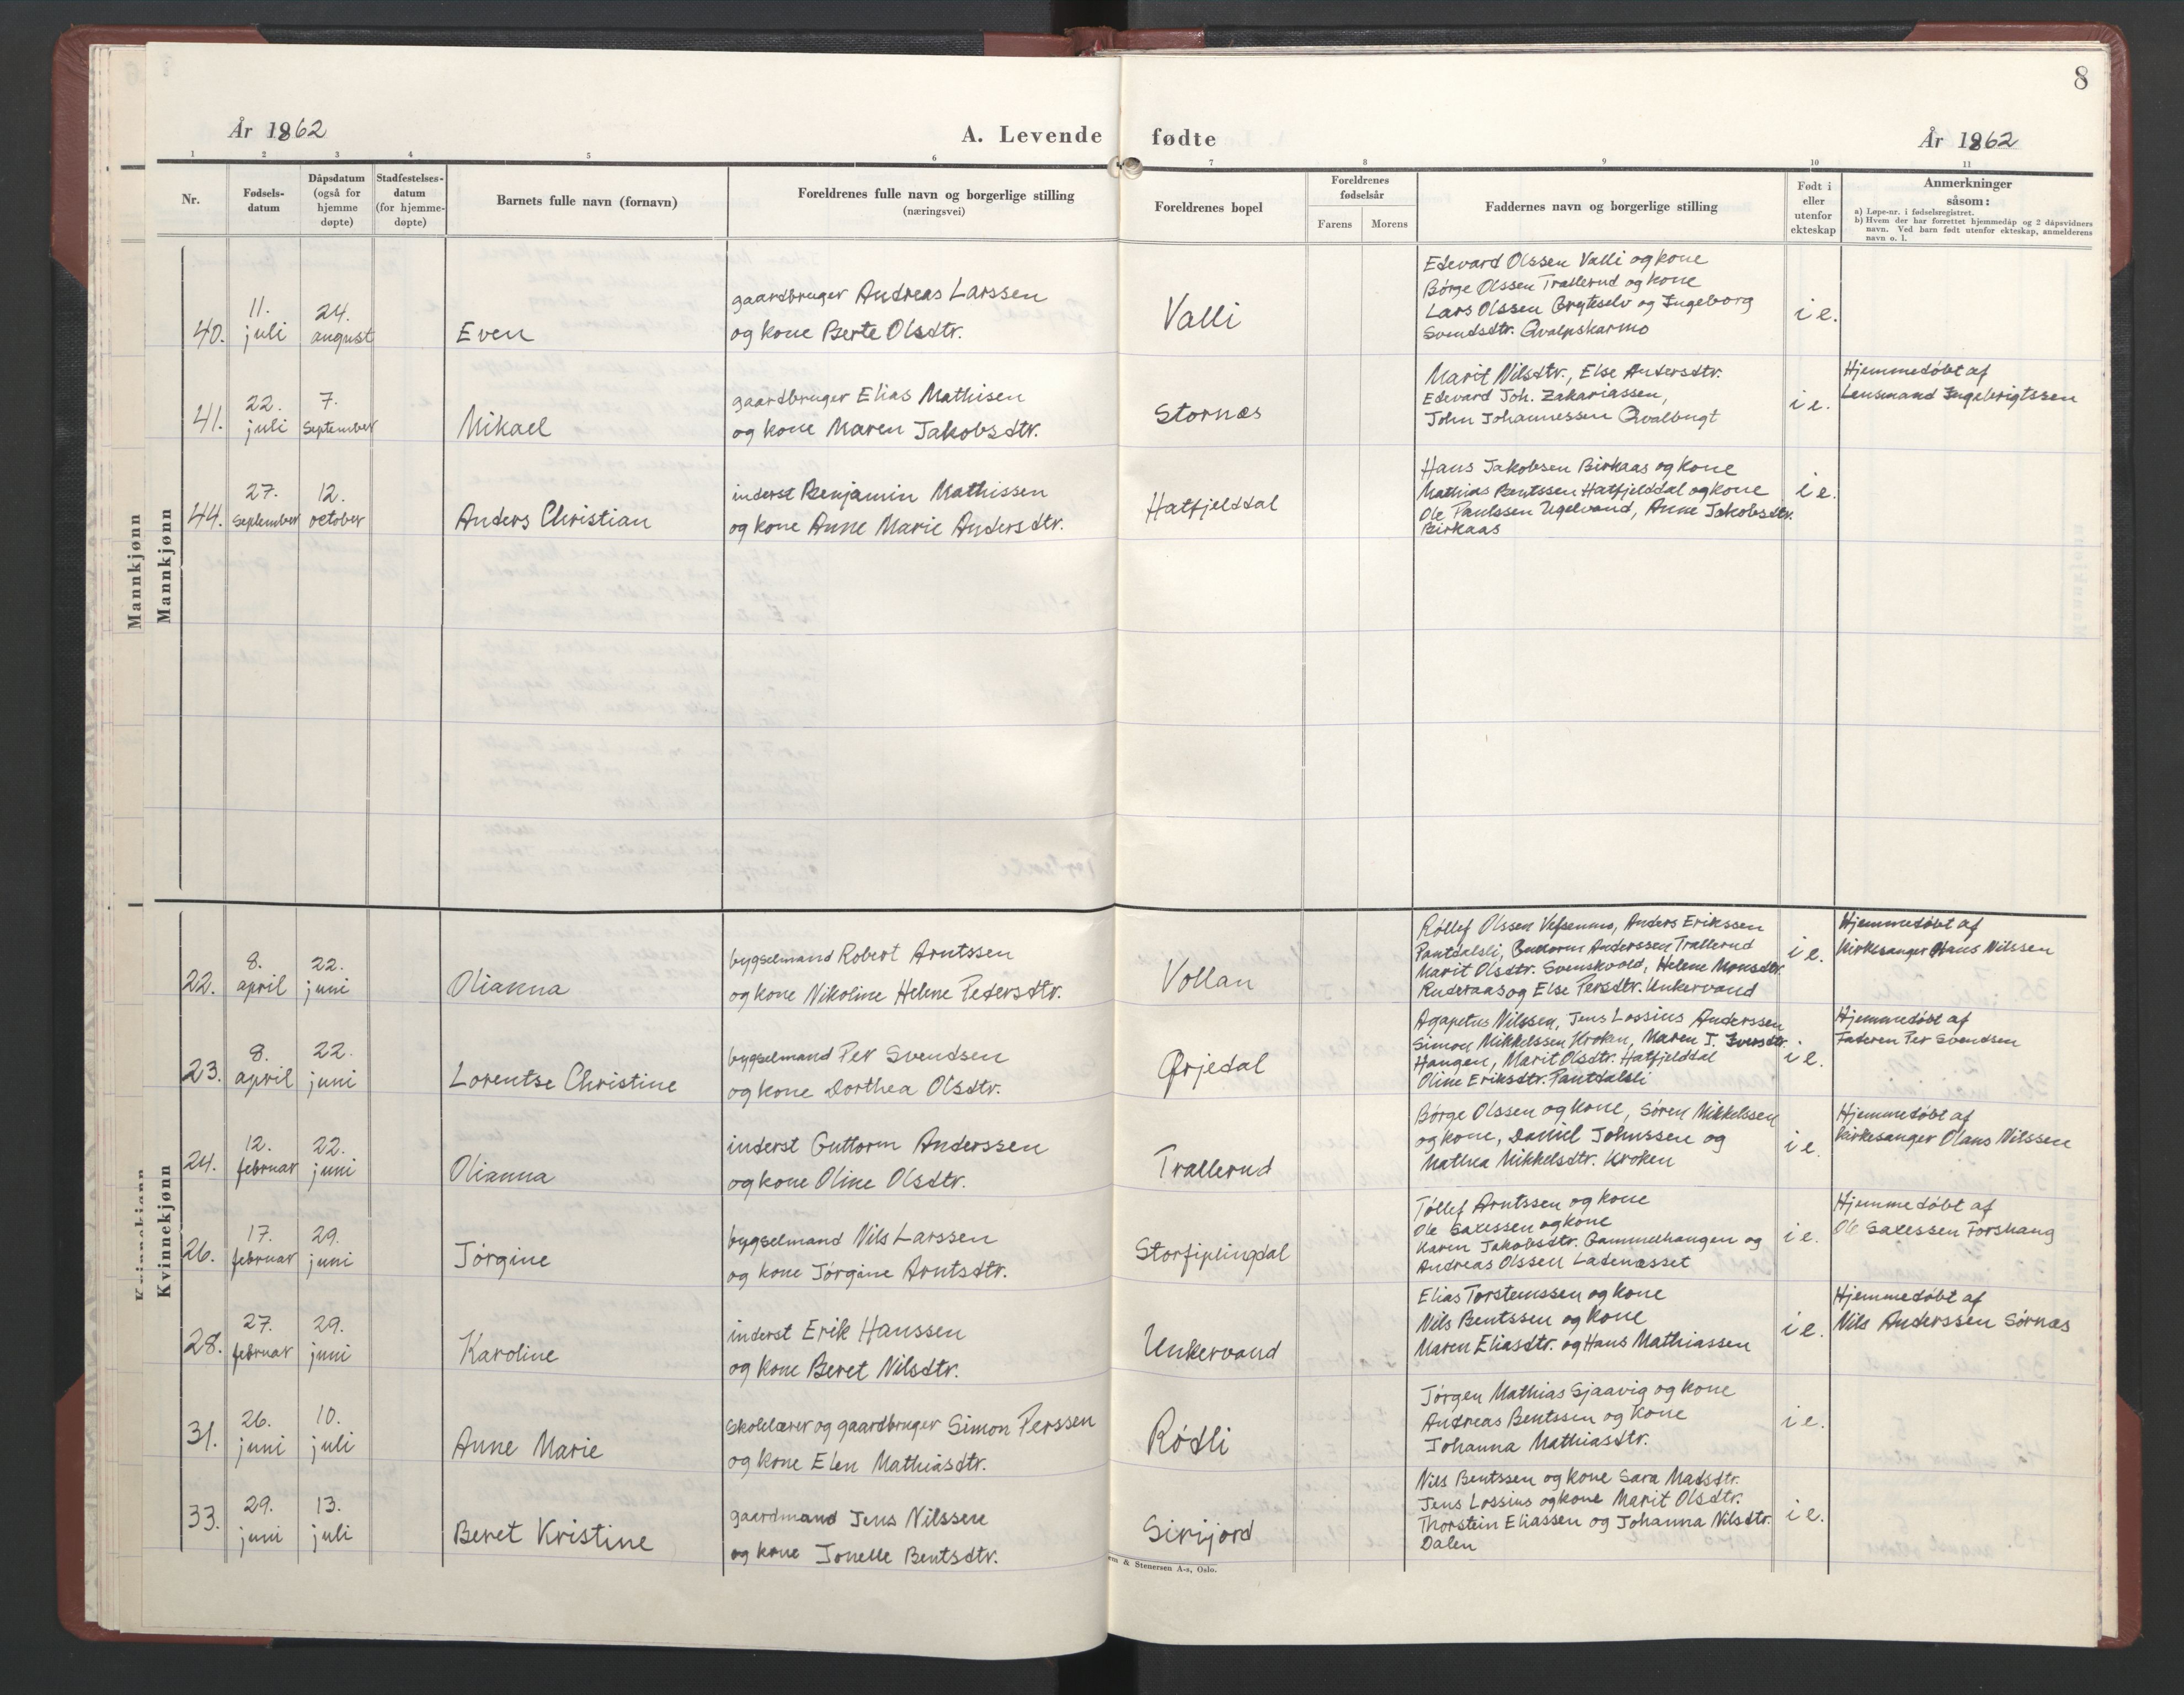 8
År 1862
A. Levende fødte
År 1862
1 2 3 4 5 6 7 8 9 10 11
Nr.
Fødsels-
datum
Dåpsdatum
(også for
hjemme
døpte)
Stadfestelses-
datum
(for hjemme-
døpte)
Barnets fulle navn (fornavn)
Foreldrenes fulle navn og borgerlige stilling
(næringsvei)
Foreldrenes bopel
Foreldrenes
fødselsår
Farens
Morens
Faddernes navn og borgerlige stilling
Født i
eller
utenfor
ekteskap
Anmerkninger
såsom:
a) Løpe-nr. i fødselsregistret.
b) Hvem der har forrettet hjemmedåp og 2 dåpsvidners
navn. Ved barn født utenfor ekteskap, anmelderens
navn o. l.
Mannkjønn
Mannkjønn
40.
11.
juli
24.
august
Even
gaardbruger Andreas Larssen
og kone Berte Olsdtr.
Valli
Edevard Olssen Valli og kone
Børge Olssen Trallerud og kone
Lars Olssen og Ingeborg
Svendsdtr. Qvalpskarmo
i e.
41.
22.
juli
7.
September
Mikael
gaardbruger Elias Mathisen
og kone Maren Jakobsdtr.
Stornæs
Marit Nilsdtr., Else Andersdtr.
Edevard Joh. Zakariassen,
John Johannessen Qvalbugt
i e.
Hjemmedøbt af
Lensmand Ingebrigtssen
44.
27.
September
12.
october
Anders Christian
inderst Benjamin Mathissen
og kone Anne Marie Andersdtr.
Hatfjelddal
Hans Jakobsen Birkaas og kone
Mathias Bentssen Hatfjelddal og kone
Ole Paulssen Ugelvand, Anne Jakobsdtr.
Birkaas
i e.
Kvinnekjønn
Kvinnekjønn
22.
8.
april
22.
juni
Olianna
bygselmand Robert Arntssen
og kone Nikoline Helene Pedersdtr.
Vollan
Rollef Olssen Vefsenmo, Anders Erikssen
Pantdalsli, Guttorm Anderssen Trallerud
Marit Olsdtr. Svenskvold, Helene Monsdtr.
Ruderaas og Else Persdtr. Unkervand
i e.
Hjemmedøbt af
Kirkesanger Hans Nilssen
23.
8.
april
22.
juni
Lorentse Christine
bygselmand Per Svendsen
og kone Dorthea Olsdtr.
Ørjedal
Agapetus Nilssen, Jens Lossius Anderssen
Simon Mikkelssen Kroken, Maren I. Iversdtr.
Haugen, Marit Olsdtr. Hatfjelddal
Oline Eriksdtr. Pantdalsli
i e.
Hjemmedøbt af
Faderen Per Svendsen
24.
12.
februar
22.
juni
Olianna
inderst Guttorm Anderssen
og kone Oline Olsdtr.
Trallerud
Børge Olssen og kone, Søren Mikkelssen
og kone, Daniel Johnssen og
Mathea Mikkelsdtr. Kroken
i e.
Hjemmedøbt af
Kirkesanger Olaus Nilssen
26.
17.
februar
29.
juni
Jørgine
bygselmand Nils Larssen
og kone Jørgine Arntsdtr.
Storfiplingdal
Tollef Arntssen og kone
Ole Saxessen og kone
Karen Jakobsdtr. Gammelhaugen og
Andreas Olssen Ladenæsset
i e.
Hjemmedøbt af
Ole Saxessen Forshaug
28.
27.
februar
29.
juni
Karoline
inderst Erik Hanssen
og kone Beret Nilsdtr.
Unkervand
Elias Torstenssen og kone
Nils Bentssen og kone
Maren Eliasdtr. og Hans Mathiassen
i e.
Hjemmedøbt af
Nils Anderssen Sørnæs
31.
26.
juni
10.
juli
Anne Marie
Skolelærer og gaardbruger Simon Perssen
og kone Elen Mathiasdtr.
Rødli
Jørgen Mathias Sjaavig og kone
Andreas Bentssen og kone
Johanna Mathiasdtr.
i e.
33.
29.
juni
13.
juli
Beret Kristine
gaardmand Jens Nilssen
og kone Jonelle Bentsdtr.
Sirijord
Nils Bentssen og kone Sara Madsdtr.
Jens Lossius og kone Marit Olsdtr.
Thorstein Eliassen og Johanna Nilsdtr.
Dalen
i e.
& Stenersen A-s, Oslo.